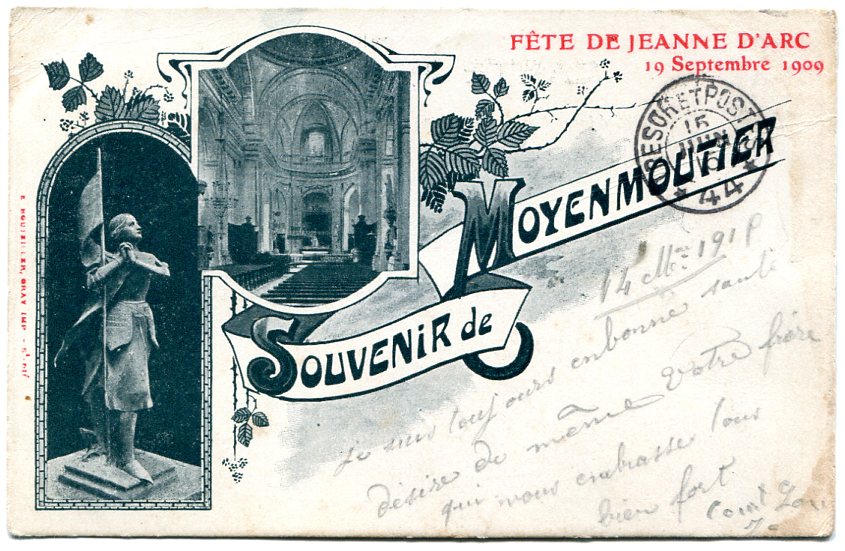 FÊTE DE JEANNE D'ARC
19 Septembre 1909
TRESOR ET POSTES
15
JUIN
44
SOUVENIR de
MOYENMOUTIER
14 1918
je suis toujours en bonne santé
désire de même votre frère
qui vous embrasse tous
bien fort
GRAY IMP - ST-DIÉ